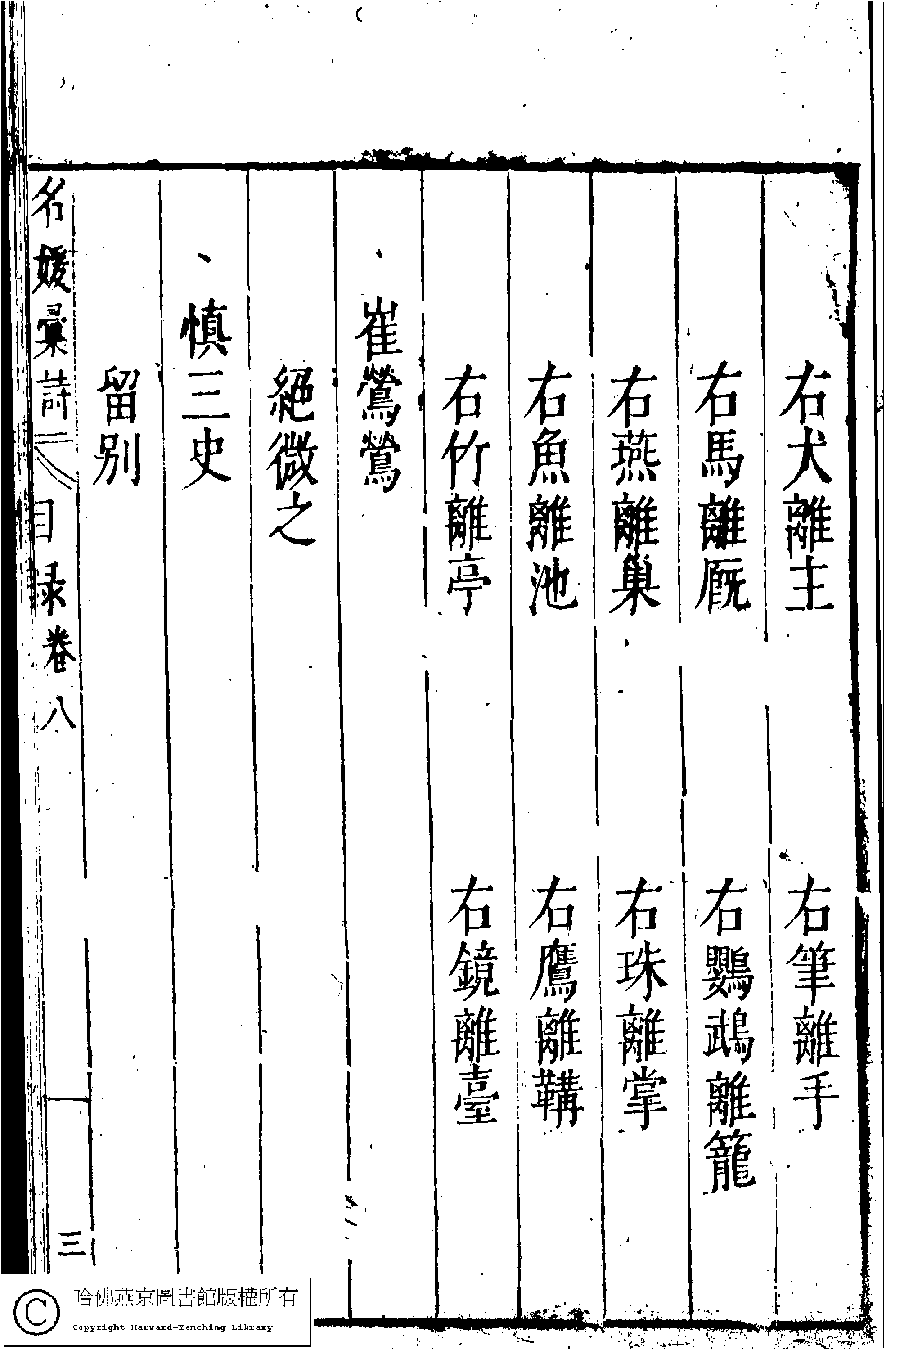 右犬離主　右筆離手
右馬離厩　右鸚鵡離籠
右燕離巢　右珠離掌
右魚離池　右鷹離鞲
右竹離亭　右鏡離臺
崔鶯鶯
絕微之
慎三史
留别
名媛彙詩　目録卷八　三
哈佛燕京圖書館版權所有
Copyright Harvard-Yenching Library